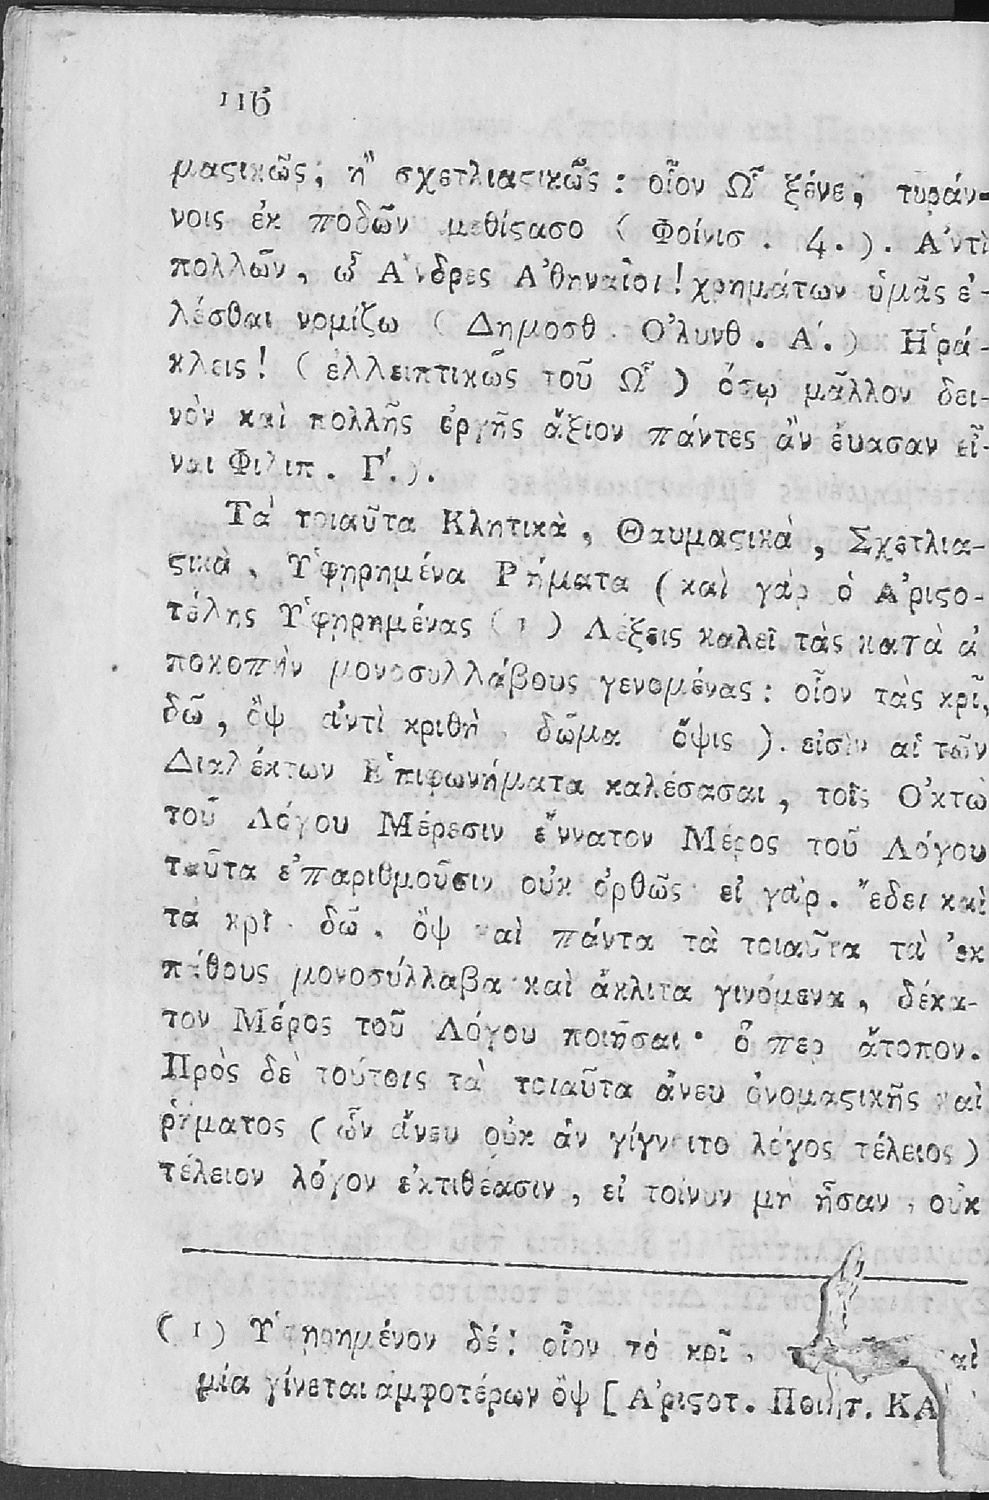 116
μαϛικῶς; ἢ σχετλιαϛικῶς: οἷον Ὦ ξένε, τυράν-
νοις ἐκ ποδῶν μεθίϛασο (Φοίνισ. 4.). Ἀντὶ
πολλῶν, ὦ Ἄνδρες Ἀθηναῖοι! χρημάτων ὑμᾶς ἑ-
λέσθαι νομίζω (Δημοσθ. Ὀλυνθ. Α΄.) Ἡρά-
κλεις! (ἐλλειπτικῶς τοῦ Ὦ) ὅσῳ μᾶλλον δει-
νὸν καὶ πολλῆς ὀργῆς ἄξιον πάντες ἂν ἔυασαν εἶ-
ναι Φιλιπ. Γ΄.).
Τὰ τοιαῦτα Κλητικὰ, Θαυμαϛικὰ, Σχετλια-
ϛικὰ, Ὑφῃρημένα Ῥήματα (καὶ γὰρ ὁ Ἀριϛο-
τέλης Ὑφῃρημένας (1) Λέξεις καλεῖ τὰς κατὰ ἀ
ποκοπὴν μονοσυλλάβους γενομένας: οἷον τὰς κρῖ,
δῶ, ὂψ ἀντὶ κριθὴ δῶμα ὄψις). εἰσὶν αἱ τῶν
Διαλέκτων Ἐπιφωνήματα καλέσασαι, τοῖς Ὀκτὼ
τοῦ Λόγου Μέρεσιν ἔννατον Μέρος τοῦ Λόγου
ταῦτα ἐπαριθμοῦσιν οὐκ ὀρθῶς· εἰ γὰρ. ἔδει καὶ
τὰ κρῖ δῶ. ὂψ καὶ πάντα τὰ τοιαῦτα τὰ ἐκ
πάθους μονοσύλλαβα καὶ ἄκλιτα γινόμενα, δέκα-
τον Μέρος τοῦ Λόγου ποιῆσαι· ὅ περ ἄτοπον.
Πρὸς δὲ τούτοις τὰ τοιαῦτα ἄνευ ὀνομαϛικῆς καὶ
ῥήματος (ὧν ἄνευ οὐκ ἂν γίγνοιτο λόγος τέλειος)
τέλειον λόγον ἐκτιθέασιν, εἰ τοίνυν μὴ ἦσαν, οὐκ
(1) Ὑφῃρημένον δέ: οἷον τὸ κρῖ, καὶ
μία γίνεται ἀμφοτέρων ὂψ [Ἀριϛοτ. Ποιητ. ΚΑ